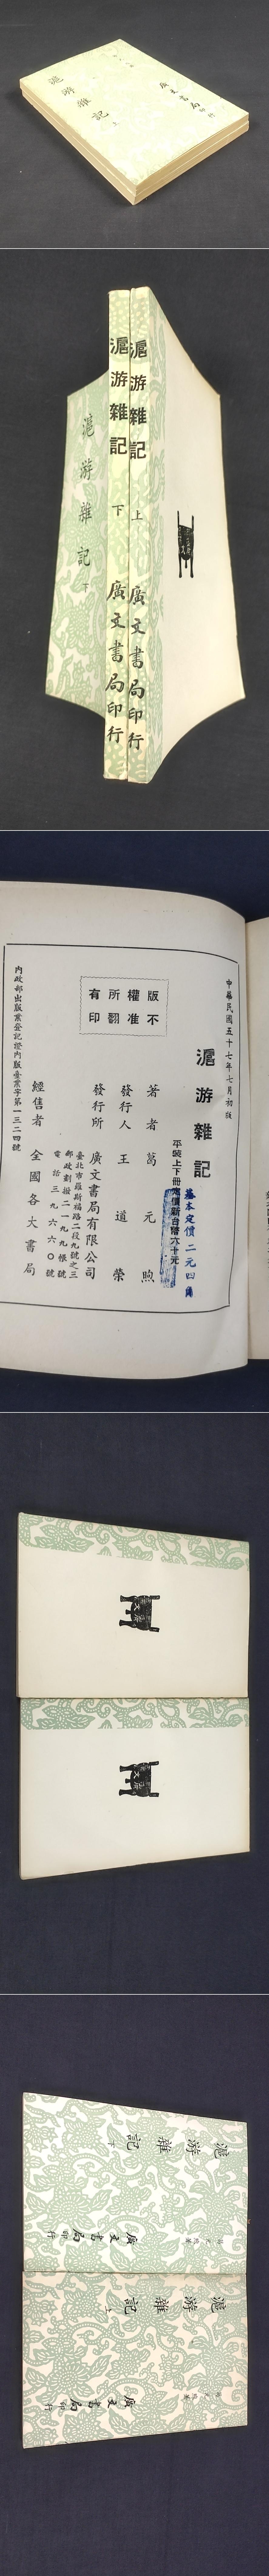 滬游雜記 上
廣文書局印行
滬游雜記 下
滬游雜記 下
廣文書局印行
滬游雜記 上
廣文書局印行
中華民國五十七年七月初版
滬游雜記
基本定價二元四角
平裝上下冊定價新台幣六十元
著者 葛元煦
發行人 王道榮
發行所 廣文書局有限公司
臺北市羅斯福路二段九號之三
郵政劃撥二一九九帳號
電話三九六六〇號
經售者 全國各大書局
版權所有
不准翻印
內政部出版業登記證內版臺業字第一三二四號
廣文
廣文
滬游雜記 下
廣文書局印行
滬游雜記 上
廣文書局印行